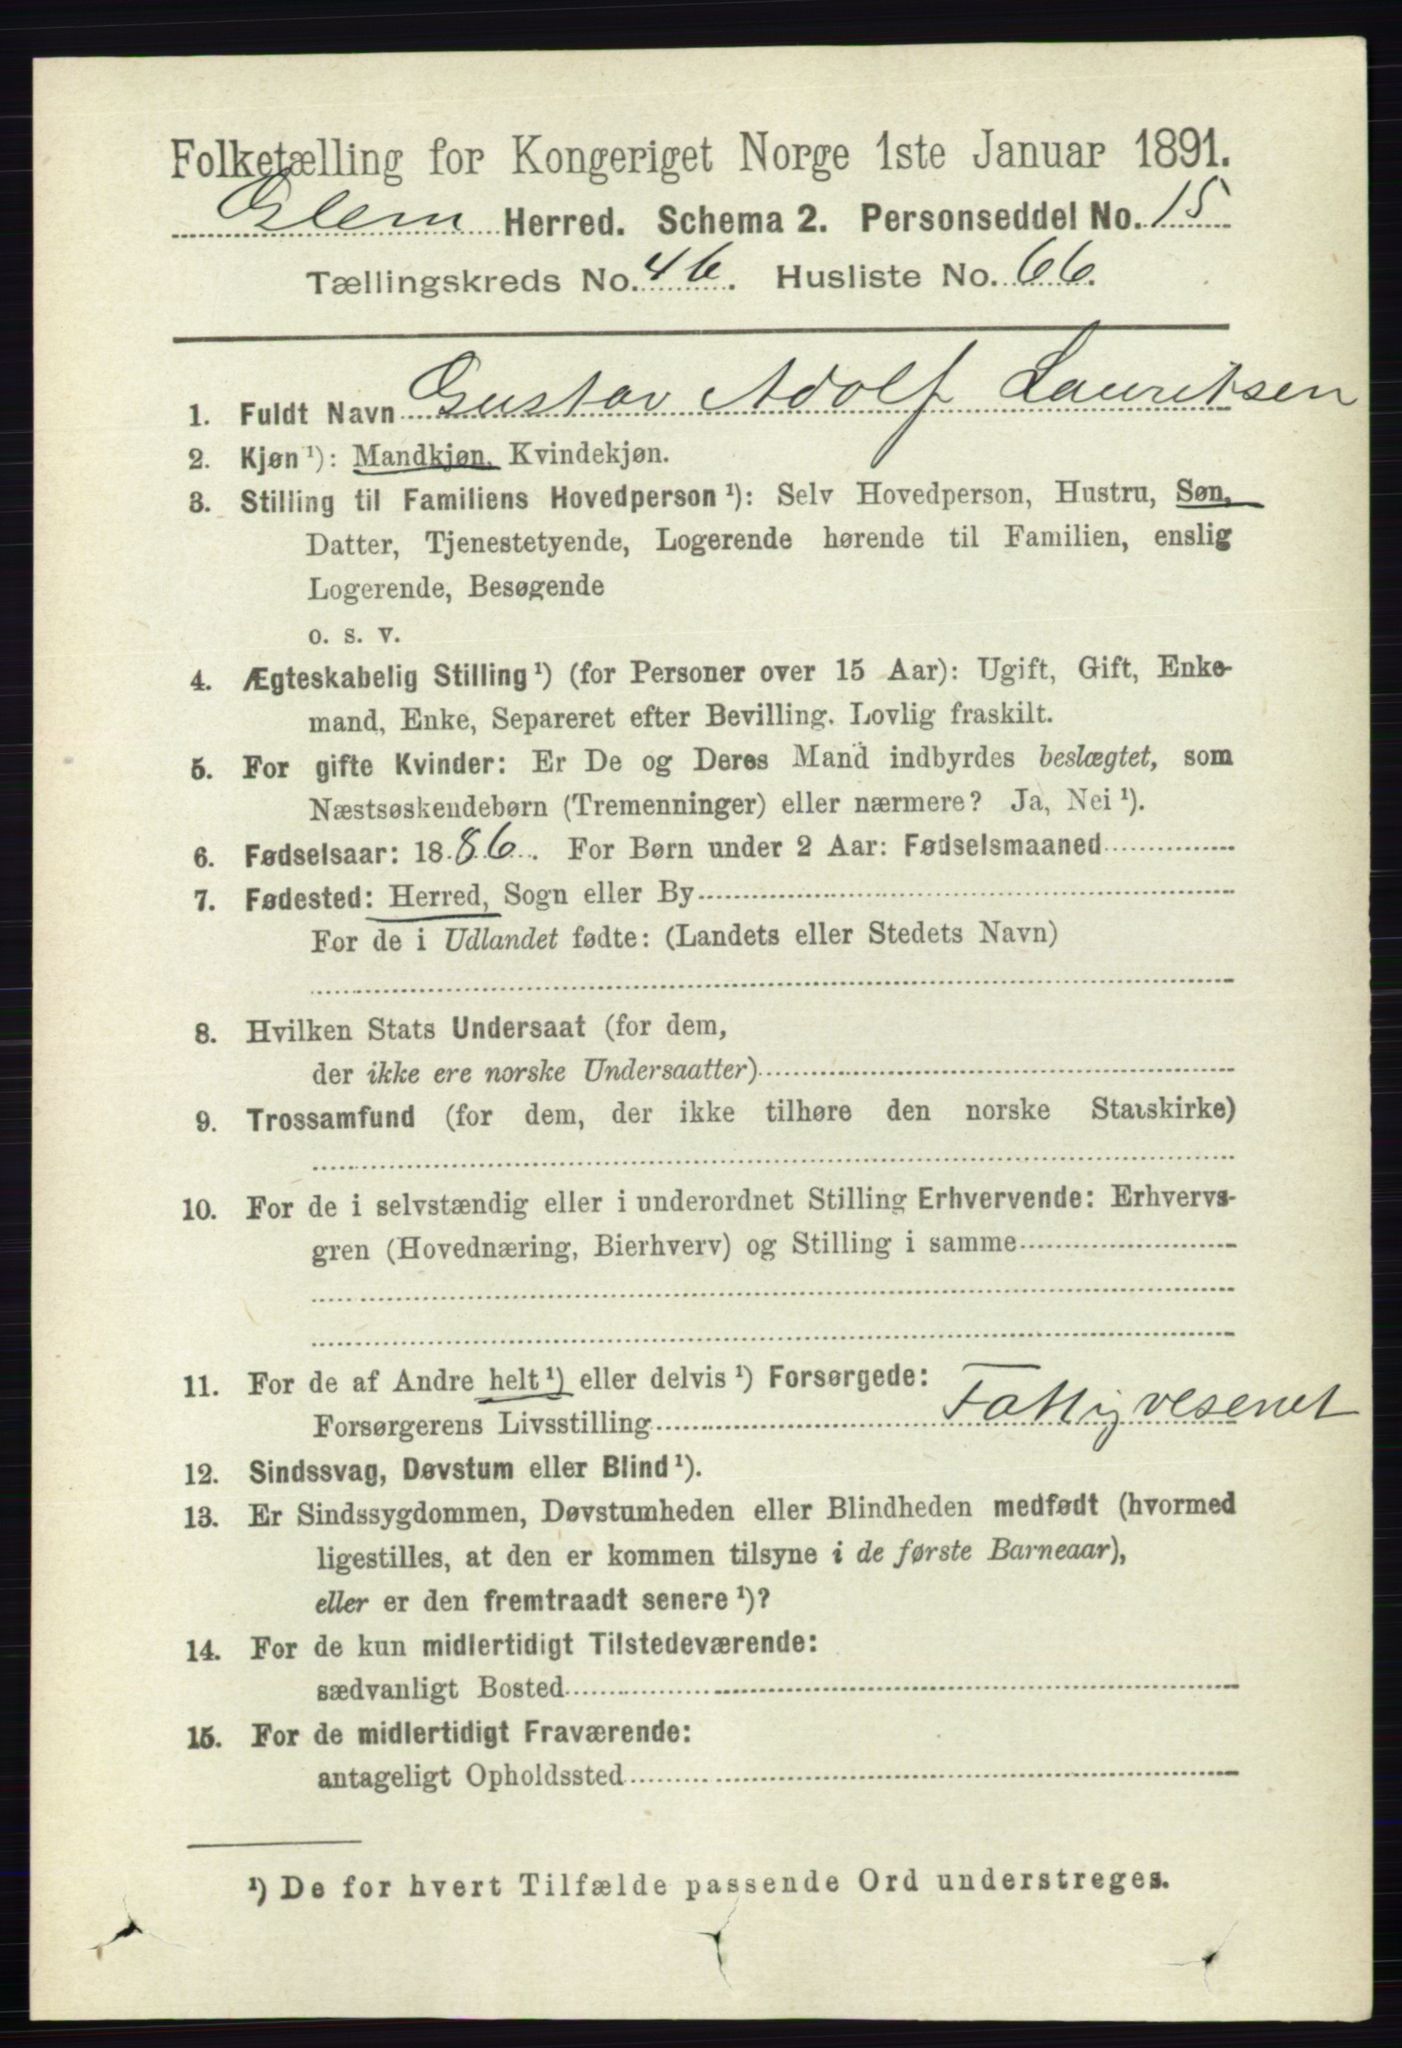 Folketælling for Kongeriget Norge 1ste Januar 1891.
Glem Herred. Schema 2. Personseddel No. 15
Tællingskreds No. 46. Husliste No. 66.
1. Fuldt Navn Gustav Adolf Lauritsen
2. Kjøn¹): Mandkjøn, Kvindekjøn.
3. Stilling til Familiens Hovedperson¹): Selv Hovedperson, Hustru, Søn,
Datter, Tjenestetyende, Logerende hørende til Familien, enslig
Logerende, Besøgende
o. s. v.
4. Ægteskabelig Stilling¹) (for Personer over 15 Aar): Ugift, Gift, Enke-
mand, Enke, Separeret efter Bevilling. Lovlig fraskilt.
5. For gifte Kvinder: Er De og Deres Mand indbyrdes beslægtet, som
Næstsøskendebørn (Tremenninger) eller nærmere? Ja, Nei¹).
6. Fødselsaar: 1886. For Børn under 2 Aar: Fødselsmaaned
7. Fødested: Herred, Sogn eller By
For de i Udlandet fødte: (Landets eller Stedets Navn)
8. Hvilken Stats Undersaat (for dem,
der ikke ere norske Undersaatter)
9. Trossamfund (for dem, der ikke tilhøre den norske Statskirke)
10. For de i selvstændig eller i underordnet Stilling Erhvervende: Erhvervs-
gren (Hovednæring, Bierhverv) og Stilling i samme
11. For de af Andre helt¹) eller delvis¹) Forsørgede:
Forsørgerens Livsstilling Fattigvesenet
12. Sindssvag, Døvstum eller Blind¹).
13. Er Sindssygdommen, Døvstumheden eller Blindheden medfødt (hvormed
ligestilles, at den er kommen tilsyne i de første Barneaar),
eller er den fremtraadt senere¹)?
14. For de kun midlertidigt Tilstedeværende:
sædvanligt Bosted
15. For de midlertidigt Fraværende:
antageligt Opholdssted
¹) De for hvert Tilfælde passende Ord understreges.